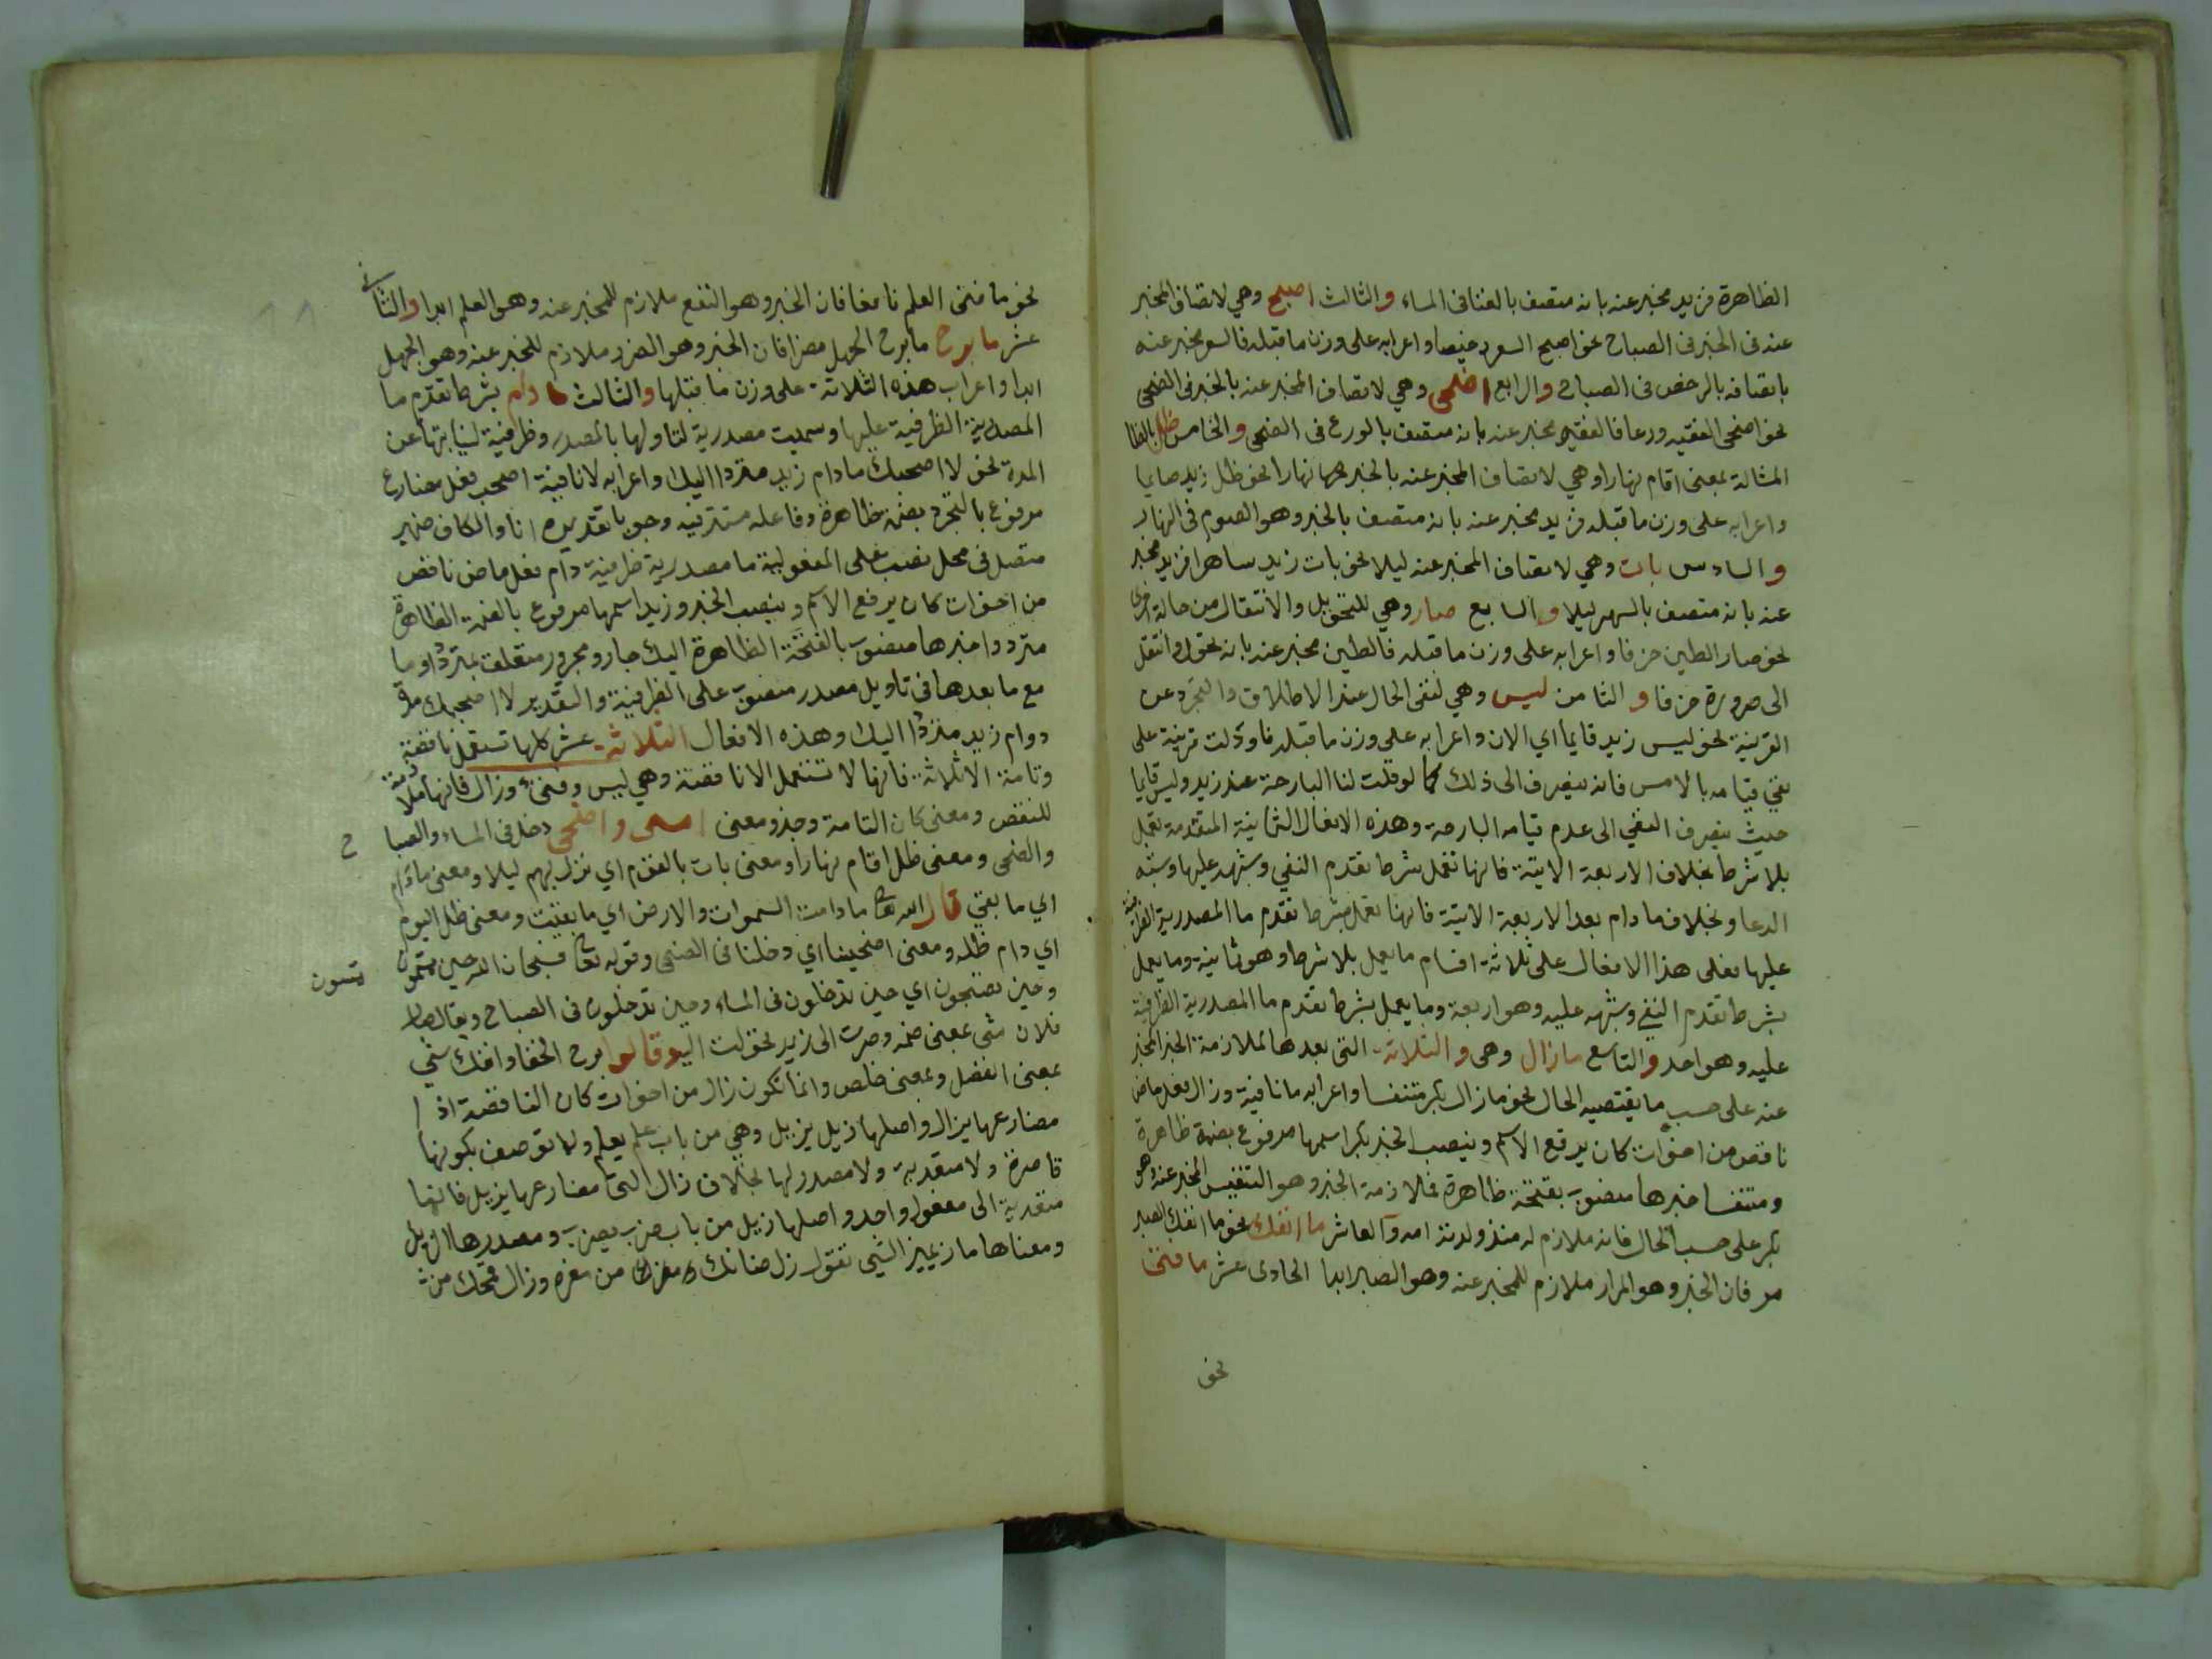 الظاهرة فزيد مخبر عنه بانه متصف بالغنا فى المساء والثالث اصبح وهي لاتصاف المخبر
عنه فى الخبر فى الصباح نحو اصبح السعر رخيصا واعرابه على وزن ما قبله فالسعر مخبر عنه
باتصافه بالرخص فى الصباح والرابع اضحى وهي لاتصاف المخبر عنه بالخبر فى الضحى
نحو اضحى الفقيه ورعا فالفقيه مخبر عنه بانه متصف بالورع فى الضحى والخامس ظل بالظا
المشالة بمعنى اقام نهارا وهي لاتصاف المخبر عنه بالخبر نهارا نحو ظل زيد صايما
واعرابه على وزن ما قبله فزيد مخبر عنه بانه متصف بالخبر وهو الصوم فى النهار
والسادس بات وهي لاتصاف المخبر عنه ليلا نحو بات زيد ساهرا فزيد مخبر
عنه بانه متصف بالسهر ليلا والسابع صار وهي للتحويل والانتقال من حالة اخرى
نحو صار الطين خزفا واعرابه على وزن ما قبله فالطين مخبر عنه بانه تحول وانتقل
الى صرورة خزفا والثامن ليس وهي لنفى الحال عند الاطلاق والتجرد عن
القرينة نحو ليس زيد قايما اي الان واعرابه على وزن ما قبله فاو دلت قرينة على
نفى قيامه بالامس فانه ينصرف الى ذلك كما لو قلت لنا البارحة عند زيد وليس قايما
حيث ينصرف النفي الى عدم قيامه البارحة وهذه الافعال الثمانية المتقدمة تعمل
بلا شرط بخلاف الاربعة الاتية فانها تعمل بشرط تقدم النفي وشبهه عليها وشبه
الدعا وبخلاف ما دام بعد الاربعة الاتية فانها تعمل بشرط تقدم ما المصدرية الظرفية
عليها فعلى هذا الافعال على ثلاثة اقسام ما يعمل بلا شرط وهو ثمانية وما يعمل
بشرط تقدم النفي وشبهه عليه وهو اربعة وما يعمل بشرط تقدم ما المصدرية الظرفية
عليه وهو احد والتاسع ما زال وهى والثلاثة التى بعدها لملازمة الخبر المخبر
عنه على حسب ما يقتصيه الحال نحو ما زال بكر متنفسا واعرابه ما نافية وزال فعل ماض
ناقص من اخوات كان يرفع الاسم وينصب الخبر بكر اسمها مرفوع بضمة ظاهرة
ومتنفسا خبرها منصوب بفتحة ظاهرة فملازمة الخبر وهو التنفيس المخبر عنه وهو
بكر على حسب الحال فانه ملازم له منذ ولدته امه والعاشر ما انفك نحو ما انفك الصبر
مر فان الخبر وهو المرار ملازم للمخبر عنه وهو الصبر ابدا الحادى عشر ما فتئ
نحو
نحو ما فتئ العلم نافعا فان الخبر وهو النفع ملازم للمخبر عنه وهو العلم ابدا والثانى
عشر ما برح ما برح الجهل مضرا فان الخبر وهو الضرر ملازم للمخبر عنه وهو الجهل
ابدا واعراب هذه الثلاثة على وزن ما قبلها والثالث ما دام بشرط تقدم ما
المصدرية الظرفية عليها وسميت مصدرية لتاولها بالمصدر وظرفية لنيابتها عن
المدة نحو لا اصحبك ما دام زيد مترددا اليك واعرابه لا نافية اصحب فعل مضارع
مرفوع بالتجرد بضمة ظاهرة وفاعله مستتر فيه وجوبا تقديره انا والكاف ضمير
متصل فى محل نصب على المفعولية ما مصدرية ظرفية دام فعل ماض ناقص
من اخوات كان يرفع الاسم وينصب الخبر وزيد اسمها مرفوع بالضمة الظاهرة
مترددا خبرها منصوب بالفتحة الظاهرة اليك جار ومجرور متعلق بمترددا وما
مع ما بعدها فى تاويل مصدر منصوب على الظرفية والتقدير لا اصحبك مدة
دوام زيد مترددا اليك وهذه الافعال الثلاثة عشر كلها تستعمل ناقصة
وتامة الا ثلاثة فانها لا تستعمل الا ناقصة وهي ليس وفتئ وزال فانها ملازمة
للنقص ومعنى كان التامة وجد ومعنى امسى واضحى دخل فى المساء والصبا ح
والضحى ومعنى ظل اقام نهارا ومعنى بات بالقوم اي نزل بهم ليلا ومعنى ما دام
اي ما بقي قال الله تعالى ما دامت السموات والارض اي ما بقيت ومعنى ظل اليوم
اي دام ظله ومعنى اضحينا اي دخلنا فى الضحى وقوله تعالى فسبحان الله حين تمسون
تمسون
وحين تصبحون اي حين تدخلون فى المساء وحين تدخلون فى الصباح ويقال صار
فلان شى بمعنى ضمه وصرت الى زيد تحولت اليه وقالوا برح الخفا وانفك شي
بمعنى انفصل وبمعنى خلص وانما تكون زال من اخوات كان الناقصة اذا
مضارعها يزال واصلها زيل يزيل وهي من باب علم يعلم ولا توصف بكونها
قاصرة ولا متعدية ولا مصدر لها بخلاف زال التى مضارعها يزيل فانها
متعدية الى مفعول واحد واصلها زيل من باب ضرب يضرب ومصدرها الزيل
ومعناها ماز يميز الشي تقول زل ضانك من معزه وزال من